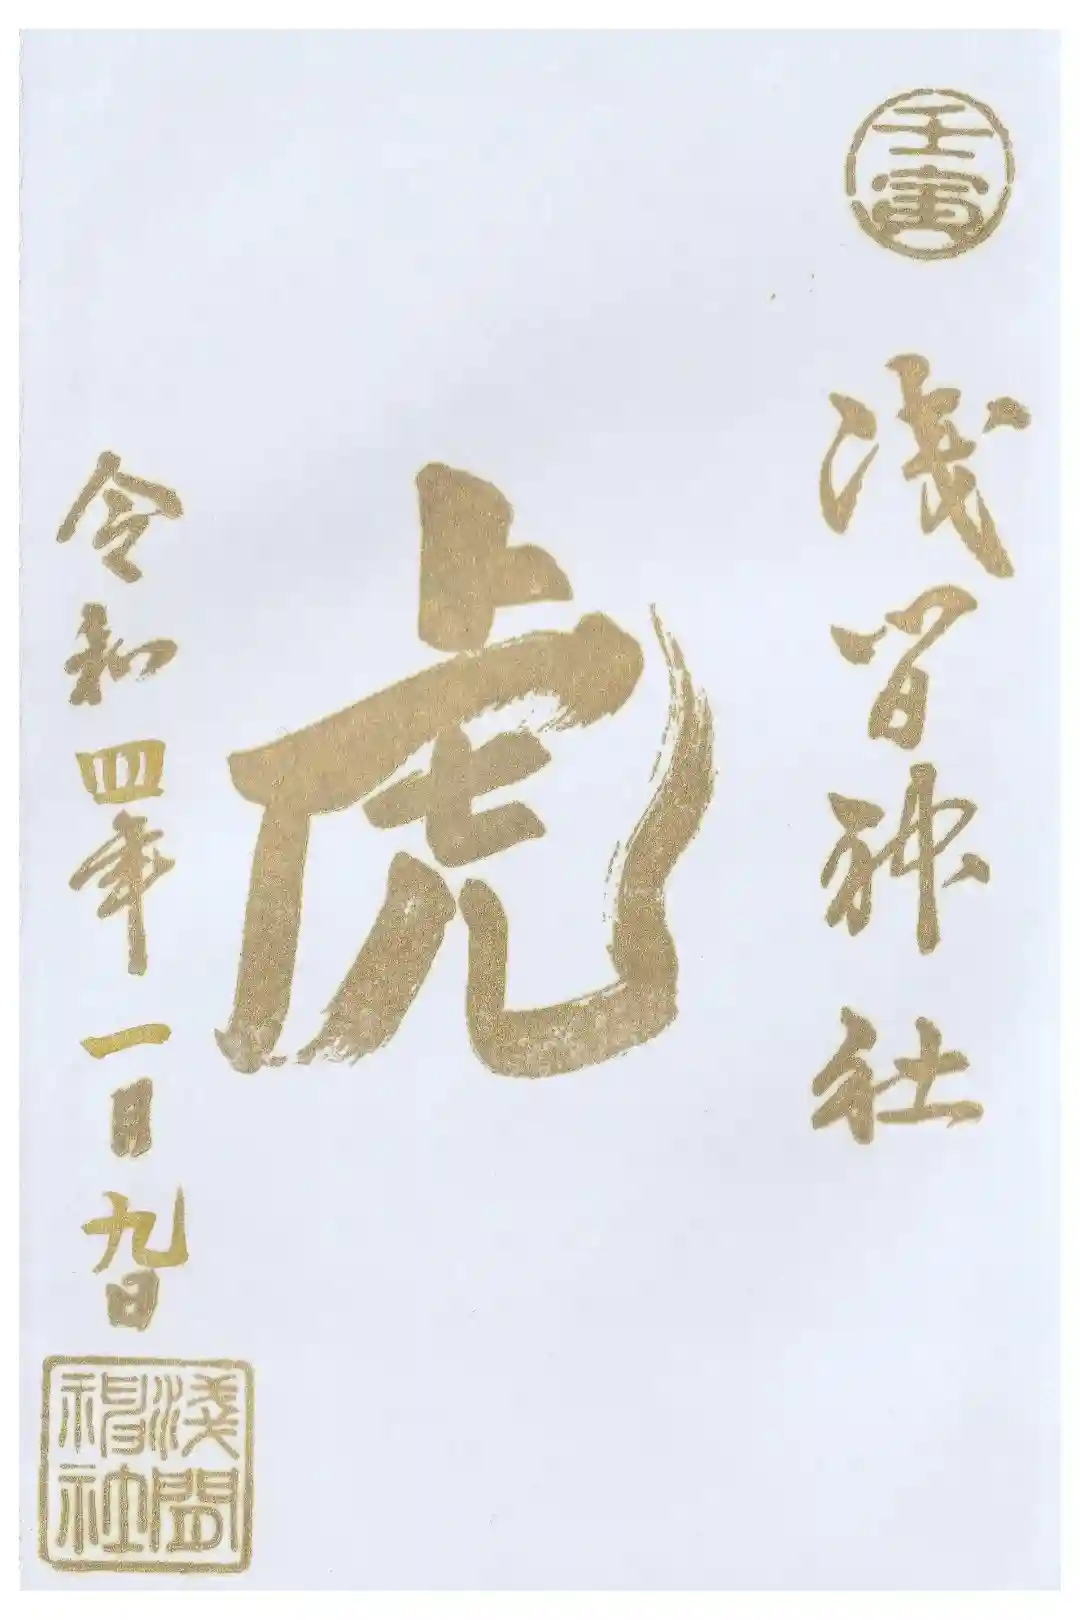 壬寅
浅間神社
虎
令和四年一月九日
淺間
神社